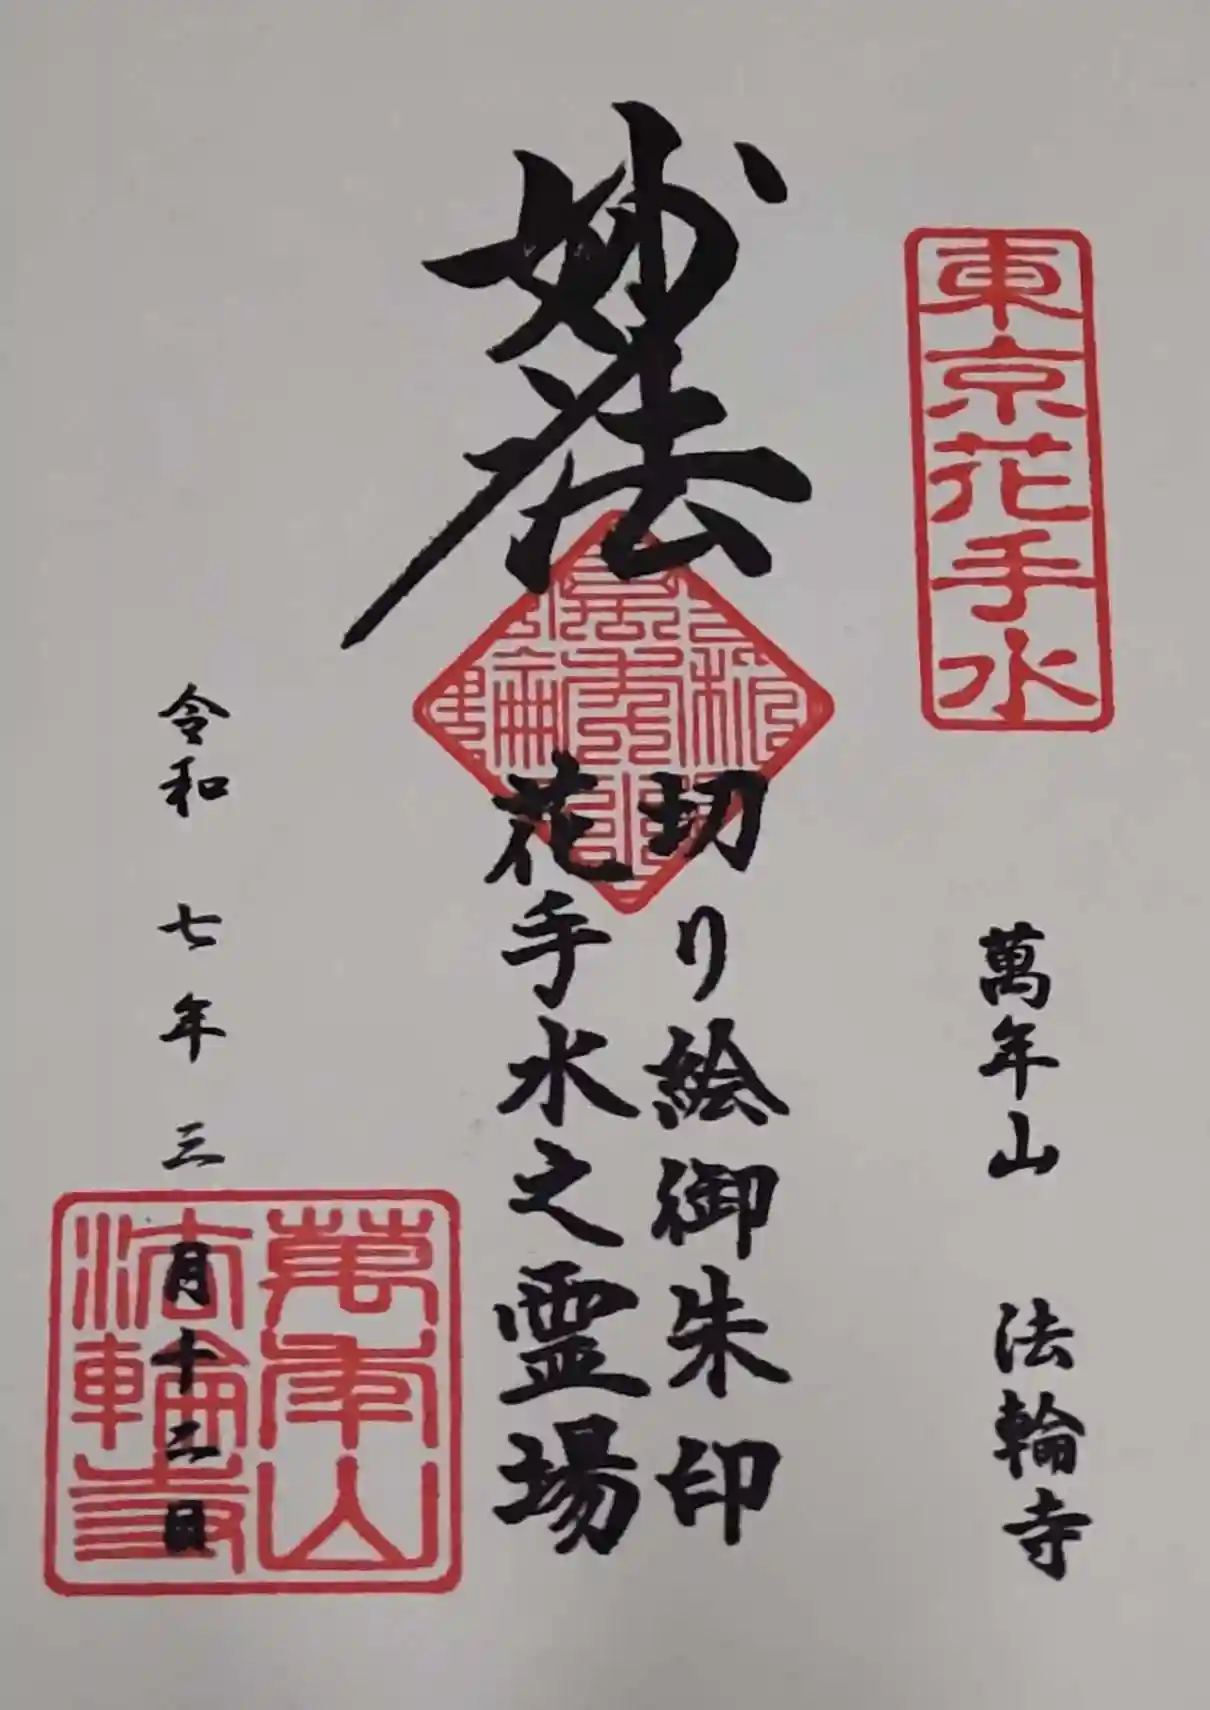 東京花手水
萬年山 法輪寺
妙法
切り絵御朱印
花手水之霊場
令和 七年 三月十二日
萬年山
法輪寺